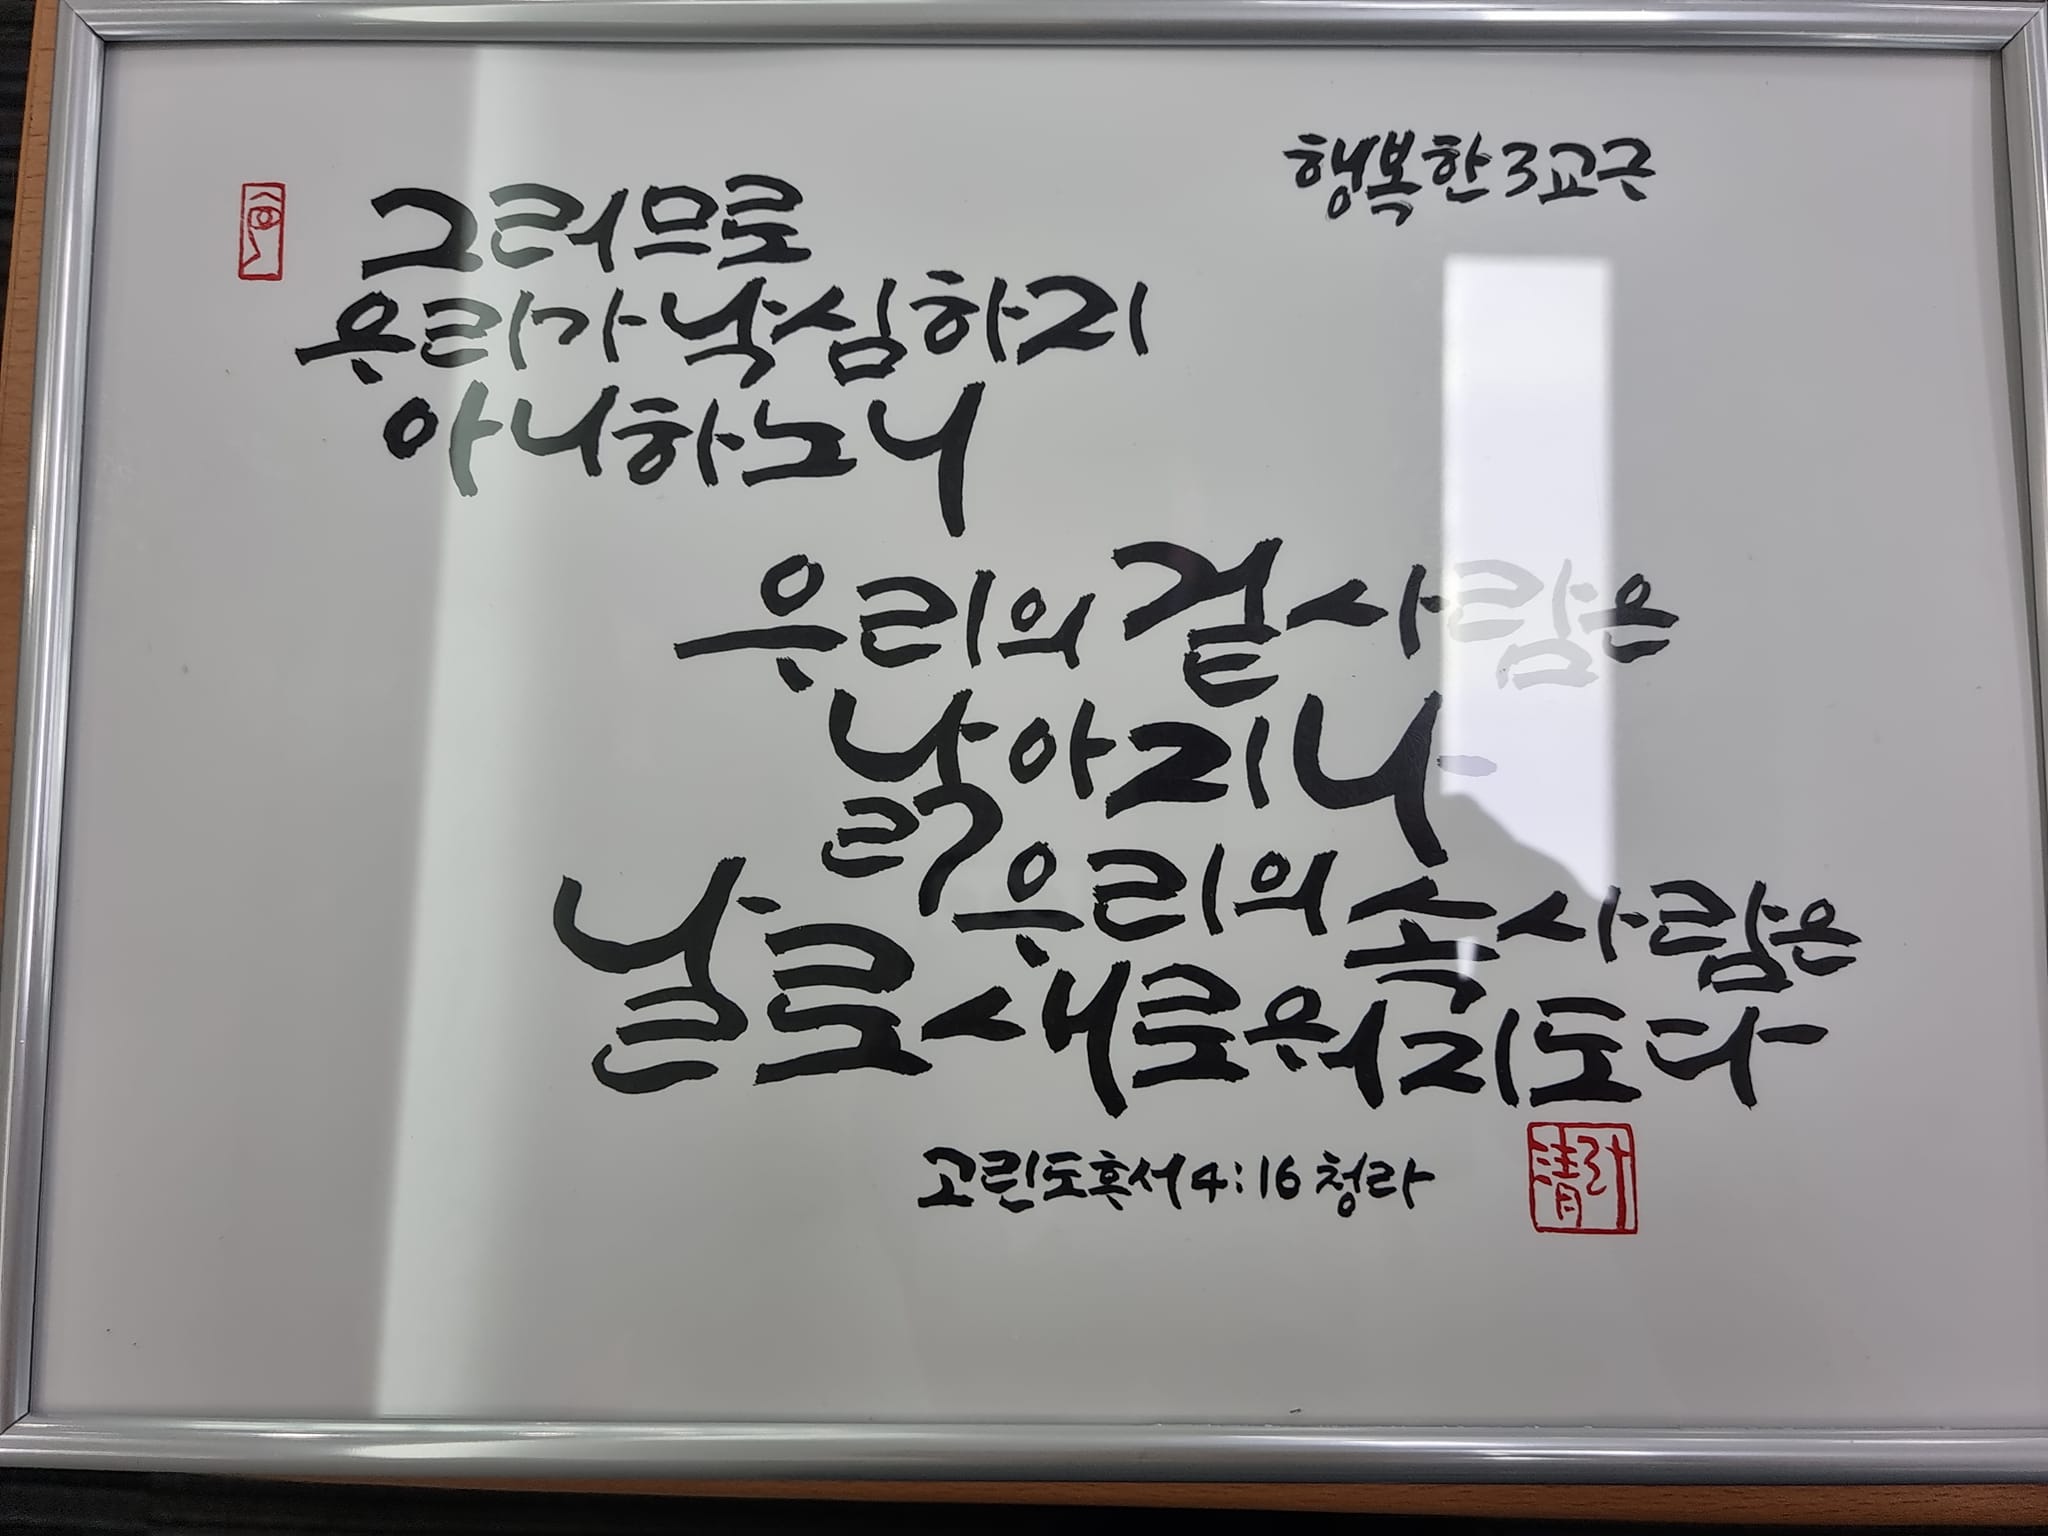 행복한 3교구
그러므로
우리가 낙심하지
아니하노니
우리의 겉사람은
낡아지나
우리의 속사람은
날로 새로워지도다
고린도후서 4:16 청라
清라